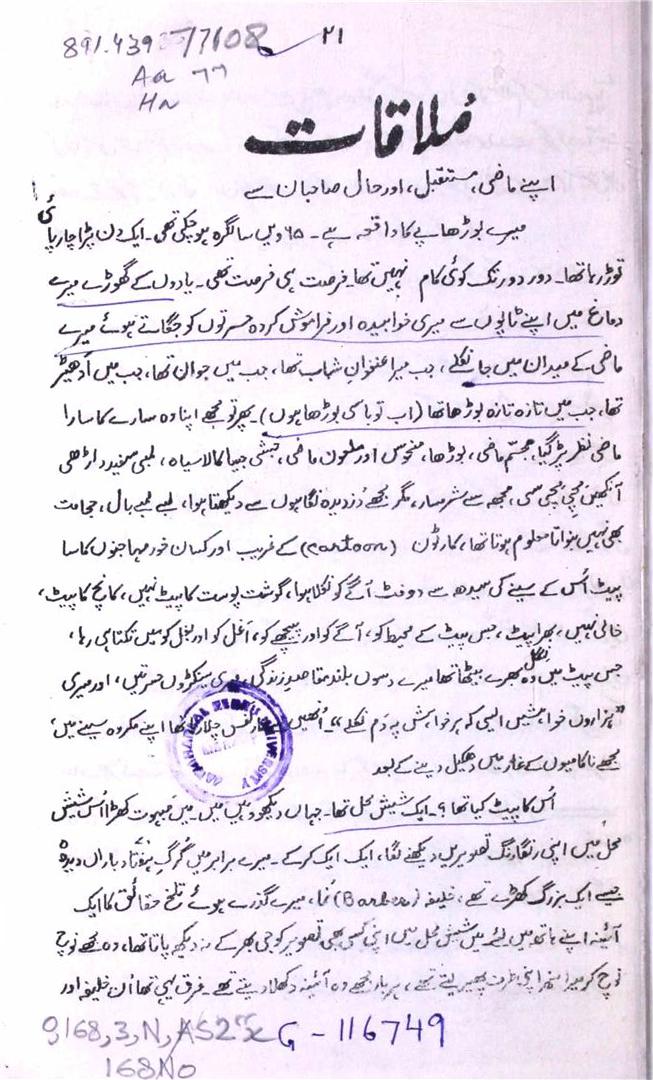 891.439 77108 ۲۱
Aa ٦٦
HN
مُلاقات
اپنے ماضی، مستقبل، اور حال صاحبان سے!
میرے بوڑھاپے کا واقعہ ہے۔ ۶۵ ویں سالگرہ ہوچکی تھی۔ ایک دن پڑا چارپائی
توڑ رہا تھا۔ دور دور تک کوئی کام نہیں تھا۔ فرصت ہی فرصت تھی۔ یادوں کے گھوڑے میرے
دماغ میں اپنے ٹاپوں سے میری خوابیدہ اور فراموش کردہ حسرتوں کو جگاتے ہوئے میرے
ماضی کے میدان میں جا نکلے، جب میرا عنفوانِ شباب تھا، جب میں جوان تھا، جب میں اُدھیڑ
تھا، جب میں تازہ تازہ بوڑھا تھا (اب تو باسی بوڑھا ہوں) پھر تو مجھے اپنا وہ سارے کا سارا
ماضی نظر پڑ گیا، مجسّم ماضی، بوڑھا، منحوس اور ملعون ماضی، حبشی جیسا کالا سیاہ، لمبی سفید داڑھی
آنکھیں مچی مچی سی، مجھ سے شرمسار، مگر مجھے دُزدیدہ نگاہوں سے دیکھتا ہوا، لمبے لمبے بال، حجامت
بھی نہیں بنواتا معلوم ہوتا تھا، کارٹون (cartoon) کے غریب اور کسان خور مہاجنوں کا سا
پیٹ اُس کے سینے کی سیدھ سے دو فٹ آگے کو نکلا ہوا، گوشت پوست کا پیٹ نہیں، کانچ کا پیٹ،
خالی نہیں، بھرا پیٹ، جس پیٹ کے محیط کو، آگے کو اور پیچھے کو، اَغل کو اور بغل کو میں تکتا ہی رہا،
جس پیٹ میں وہ نگل بھرے بیٹھا تھا میرے دسوں بلند مقاصدِ زندگی، سینکڑوں حسرتیں، اور میری
”ہزاروں خواہشیں ایسی کہ ہر خواہش پہ دَم نکلے“۔ اُنھیں چلا رہا تھا اپنے مکروہ سینے میں،
مجھے ناکامیوں کے غار میں دھکیل دینے کے بعد
اُس کا پیٹ کیا تھا؟۔ ایک شیش محل تھا۔ جہاں دیکھو میں میں۔ میں مبہوت کھڑا اُس شیش
محل میں اپنی رنگارنگ تصویریں دیکھنے لگا، ایک ایک کرکے۔ میرے برابر میں گُرگِ ہفتاد باراں دیدہ
جیسے ایک بزرگ کھڑے تھے، خلیفہ (Barber) نما، میرے گذرے ہوئے تلخ حقائق کا ایک
آئینہ اپنے ہاتھ میں لئے۔ میں شیش محل میں اپنی کسی بھی تصویر کو جی بھر کے نہ دیکھ پاتا تھا، وہ مجھے نوچ
نوچ کر میرا منھ اپنی طرف پھیر لیتے تھے، ہر بار مجھے وہ آئینہ دکھلا دیتے تھے۔ فرق یہی تھا اُن خلیفہ اور
9168,3,N, AS2 G-116749
168No